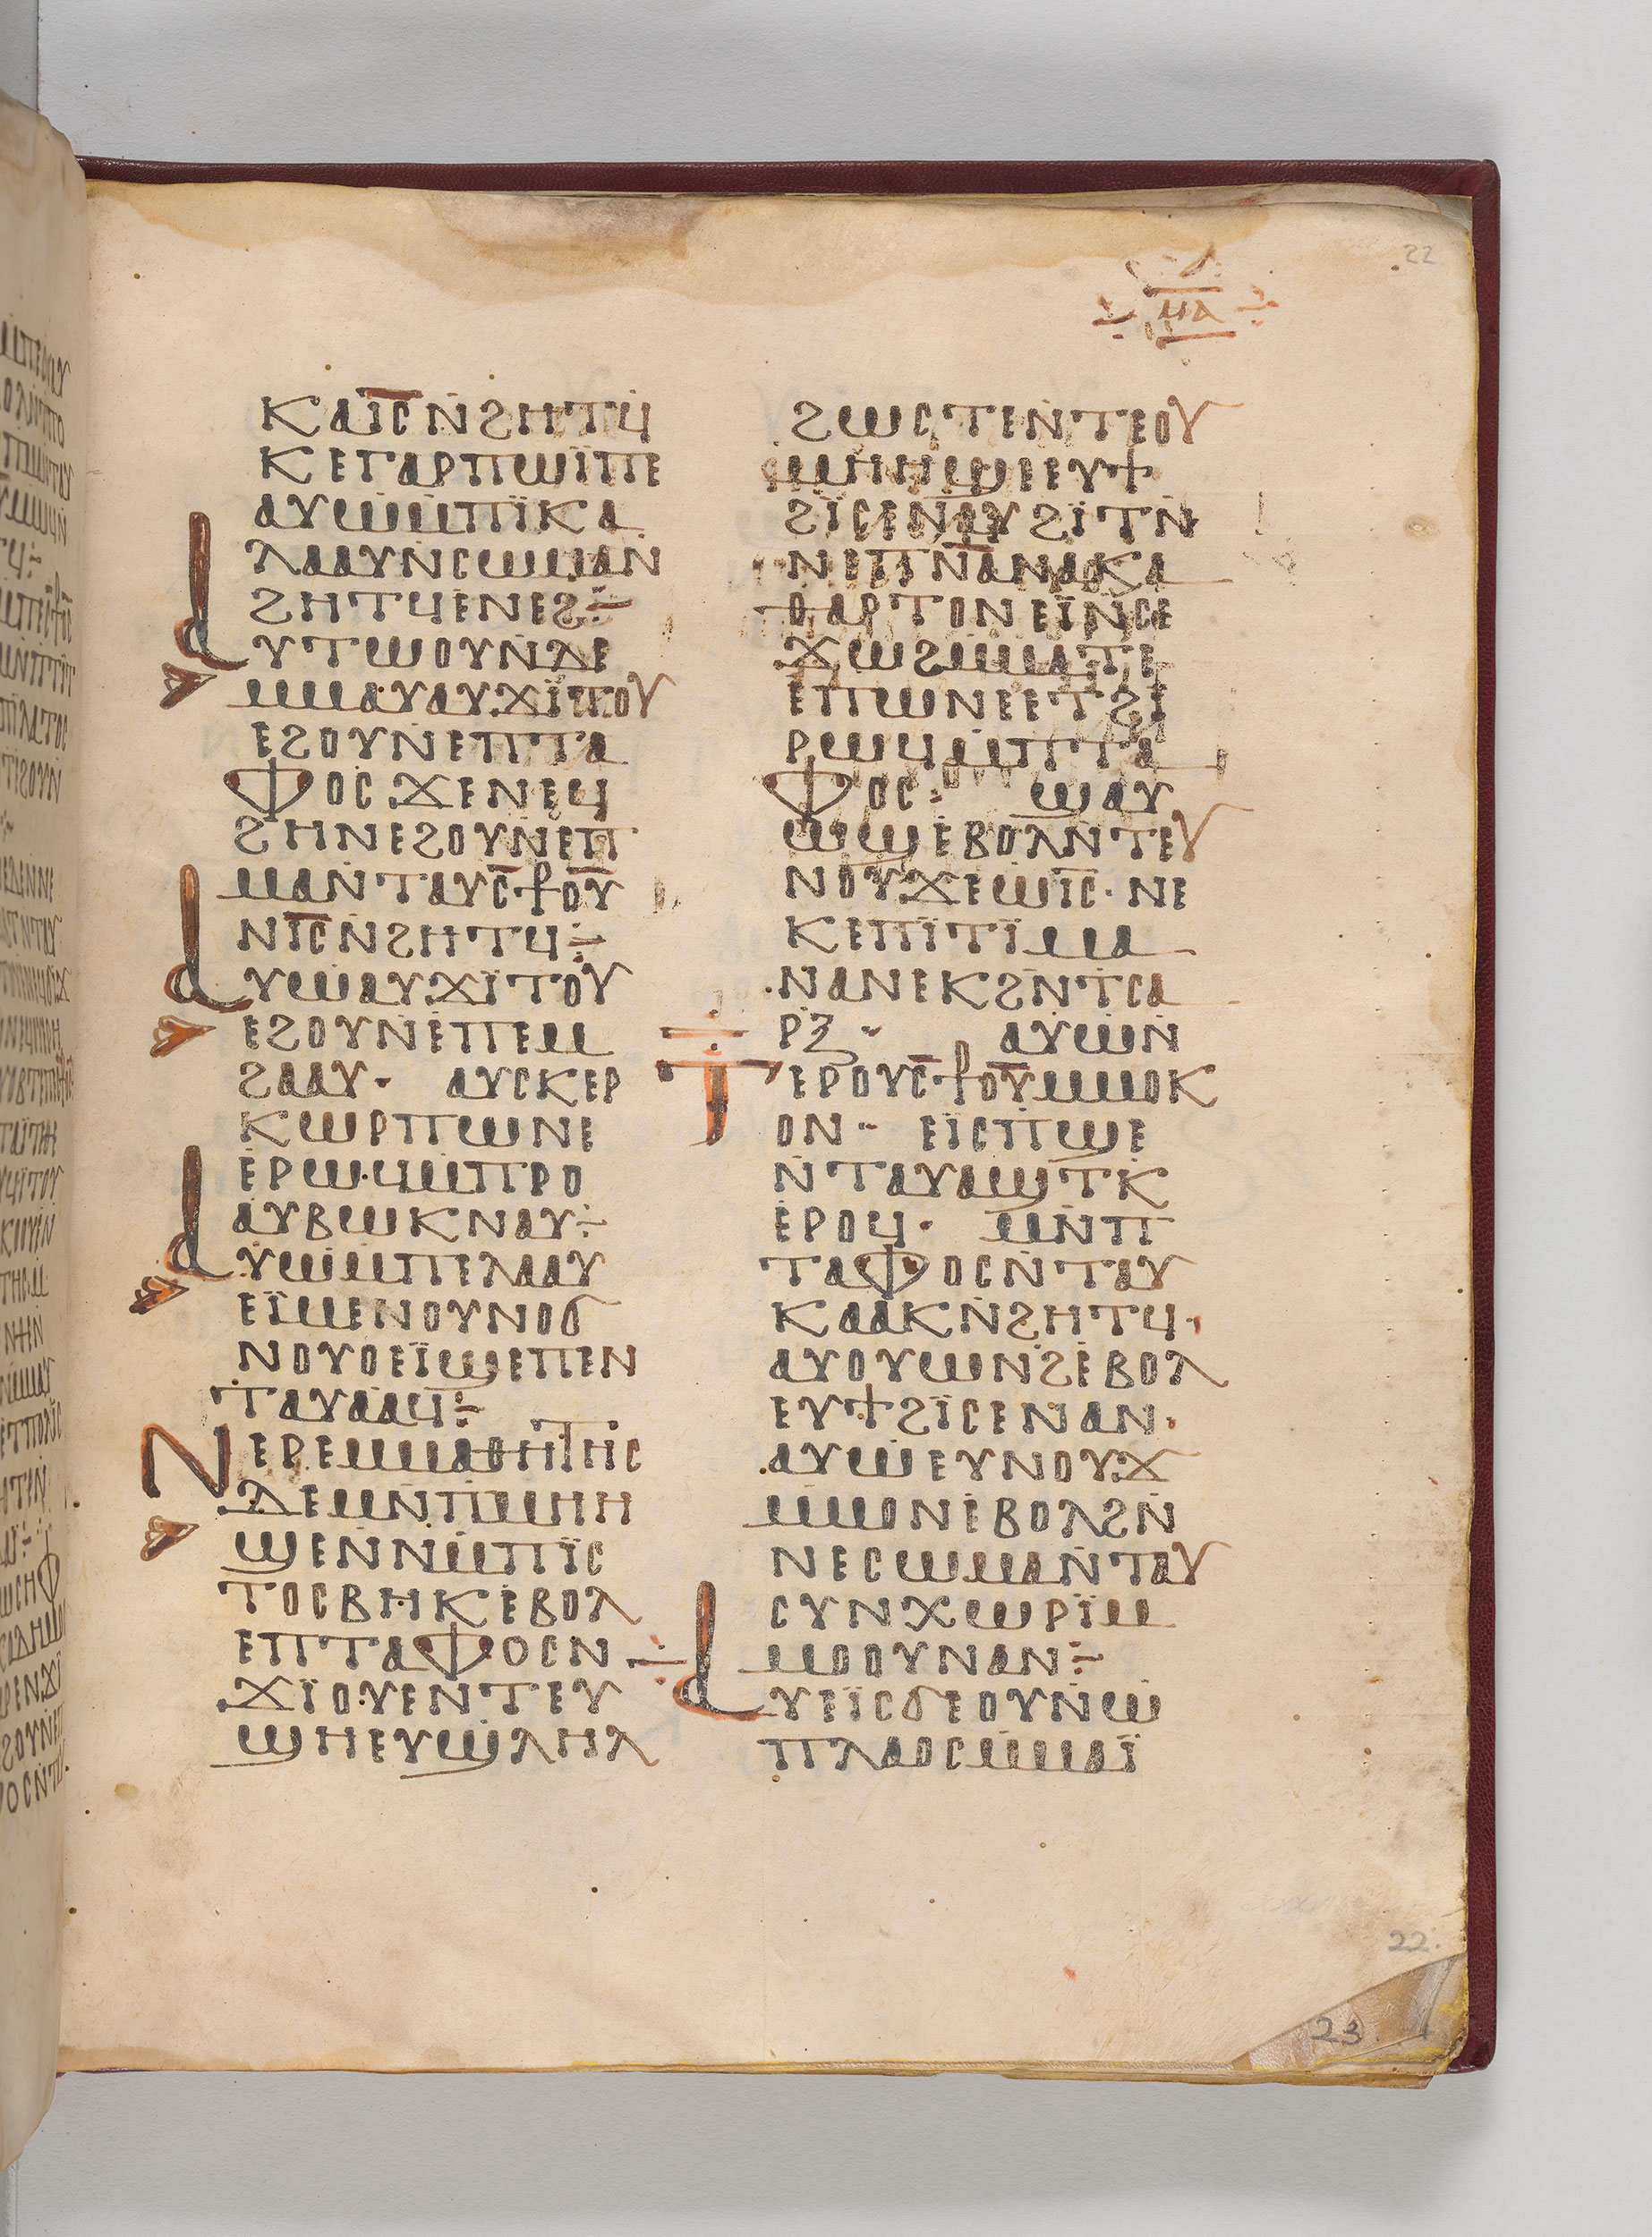 22
ⲙⲁ
ⲕⲁⲓ̅ⲥ̅ⲛ̇ϩⲏⲧϥ̇
ⲕⲉⲅⲁⲣⲡⲱⲓ̈ⲡⲉ
ⲁⲩⲱⲙ̇ⲡⲓ̈ⲕⲁ
ⲗⲁⲁⲩⲛ̇ⲥⲱⲙⲁⲛ̇
ϩⲏⲧϥⲉ̇ⲛⲉϩ÷
ⲁⲩⲧⲱⲟⲩⲛ̇ⲇⲉ
ⲙⲙⲁⲩⲁⲩϫⲓ̈ⲧⲟⲩ
ⲉϩⲟⲩⲛⲉⲡⲧⲁ
ⲫⲟⲥϫⲉⲛⲉϥ
ϩⲏⲛⲉϩⲟⲩⲛⲉⲡ
ⲙⲁⲛ̇ⲧⲁⲩⲥ̅ⳁⲟ̅ⲩ
ⲛⲓ̅ⲥ̅ⲛ̇ϩⲏⲧϥ÷
ⲁⲩⲱⲁⲩϫⲓ̈ⲧⲟⲩ
ⲉϩⲟⲩⲛⲉ̇ⲡⲉⲙ
ϩⲁⲁⲩ· ⲁⲩⲥⲕⲉⲣ
ⲕⲱⲣⲡⲱⲛⲉ
ⲉ̇ⲣⲱ·ϥⲙ̇ⲡⲣⲟ
ⲁⲩⲃⲱⲕⲛⲁⲩ÷
ⲁⲩⲱⲙ̇ⲡⲉⲗⲁⲁⲩ
ⲉⲓ̈ⲙⲉⲛⲟⲩⲛⲟϭ
ⲛⲟⲩⲟⲉⲓ̈ϣⲉⲡⲉⲛ
ⲧⲁⲩⲁⲁϥ÷
ⲛⲉⲣⲉⲙⲙⲁⲑⲏⲧⲏⲥ
ⲇⲉⲙⲛ̇ⲡⲙⲏⲏ
ϣⲉⲛⲛⲙ̇ⲡⲓ̈ⲥ
ⲧⲟⲥⲃⲏⲕⲉ̇ⲃⲟⲗ
ⲉⲡⲧⲁⲫⲟⲥⲛ
ϫⲓ̈ⲟⲩⲉⲛⲧⲉⲩ
ϣⲏⲉⲩϣⲗⲏⲗ
ϩⲱⲥⲧⲉⲛ̇ⲧⲉⲟⲩ
ⲙⲏⲏϣⲉⲉⲩϯ
ϩⲓ̈ⲥⲉⲛⲁⲩϩⲓ̈ⲧⲛ̇
ⲛⲉⲡ̅ⲛ̅ⲁ̅ⲛⲁⲕⲁ
ⲑⲁⲣⲧⲟⲛⲉⲓ̈ⲛⲥⲉ
ϫⲱϩⲙⲙⲁⲧⲉ
ⲉⲡⲱⲛⲉⲉⲧϩⲓ̈
ⲣⲱϥⲙ̇ⲡⲧⲁ
ⲫⲟⲥ· ϣⲁⲩ
ⲱϣⲉ̇ⲃⲟⲗⲛ̇ⲧⲉⲩ
ⲛⲟⲩϫⲉⲱⲓ̅ⲥ̅·ⲛⲉ
ⲕⲉⲡⲓ̈ⲧⲓ̈ⲙⲁ
ⲛⲁⲛⲉⲕϩⲛ̇ⲧⲥⲁ
ⲣⲝ· ⲁⲩⲱⲛ̇
ⲧⲉⲣⲟⲩⲥ̅ⳁⲟ̅ⲩⲙⲙⲟⲕ
ⲟⲛ· ⲉⲓ̈ⲥⲡϣⲉ
ⲛ̇ⲧⲁⲩⲁϣⲧⲕ̇
ⲉ̇ⲣⲟϥ· ⲙⲛ̇ⲡ
ⲧⲁⲫⲟⲥⲛ̇ⲧⲁⲩ
ⲕⲁⲁⲕⲛ̇ϩⲏⲧϥ·
ⲁⲩⲟⲩⲱⲛϩⲉ̇ⲃⲟⲗ
ⲉⲩϯϩⲓ̈ⲥⲉⲛⲁⲛ·
ⲁⲩⲱⲉⲩⲛⲟⲩϫ
ⲙⲙⲟⲛⲉ̇ⲃⲟⲗϩⲛ̇
ⲛⲉⲥⲱⲙⲁⲛ̇ⲧⲁⲩ
ⲥⲩⲛⲭⲱⲣⲓ̈ⲙ
ⲙⲟⲟⲩⲛⲁⲛ÷
ⲁⲩⲉⲓ̈ⲥϭⲉⲟⲩⲛ̇ⲱ̇
ⲡⲗⲁⲟⲥⲙ̇ⲙⲁⲓ̈
22.
23.